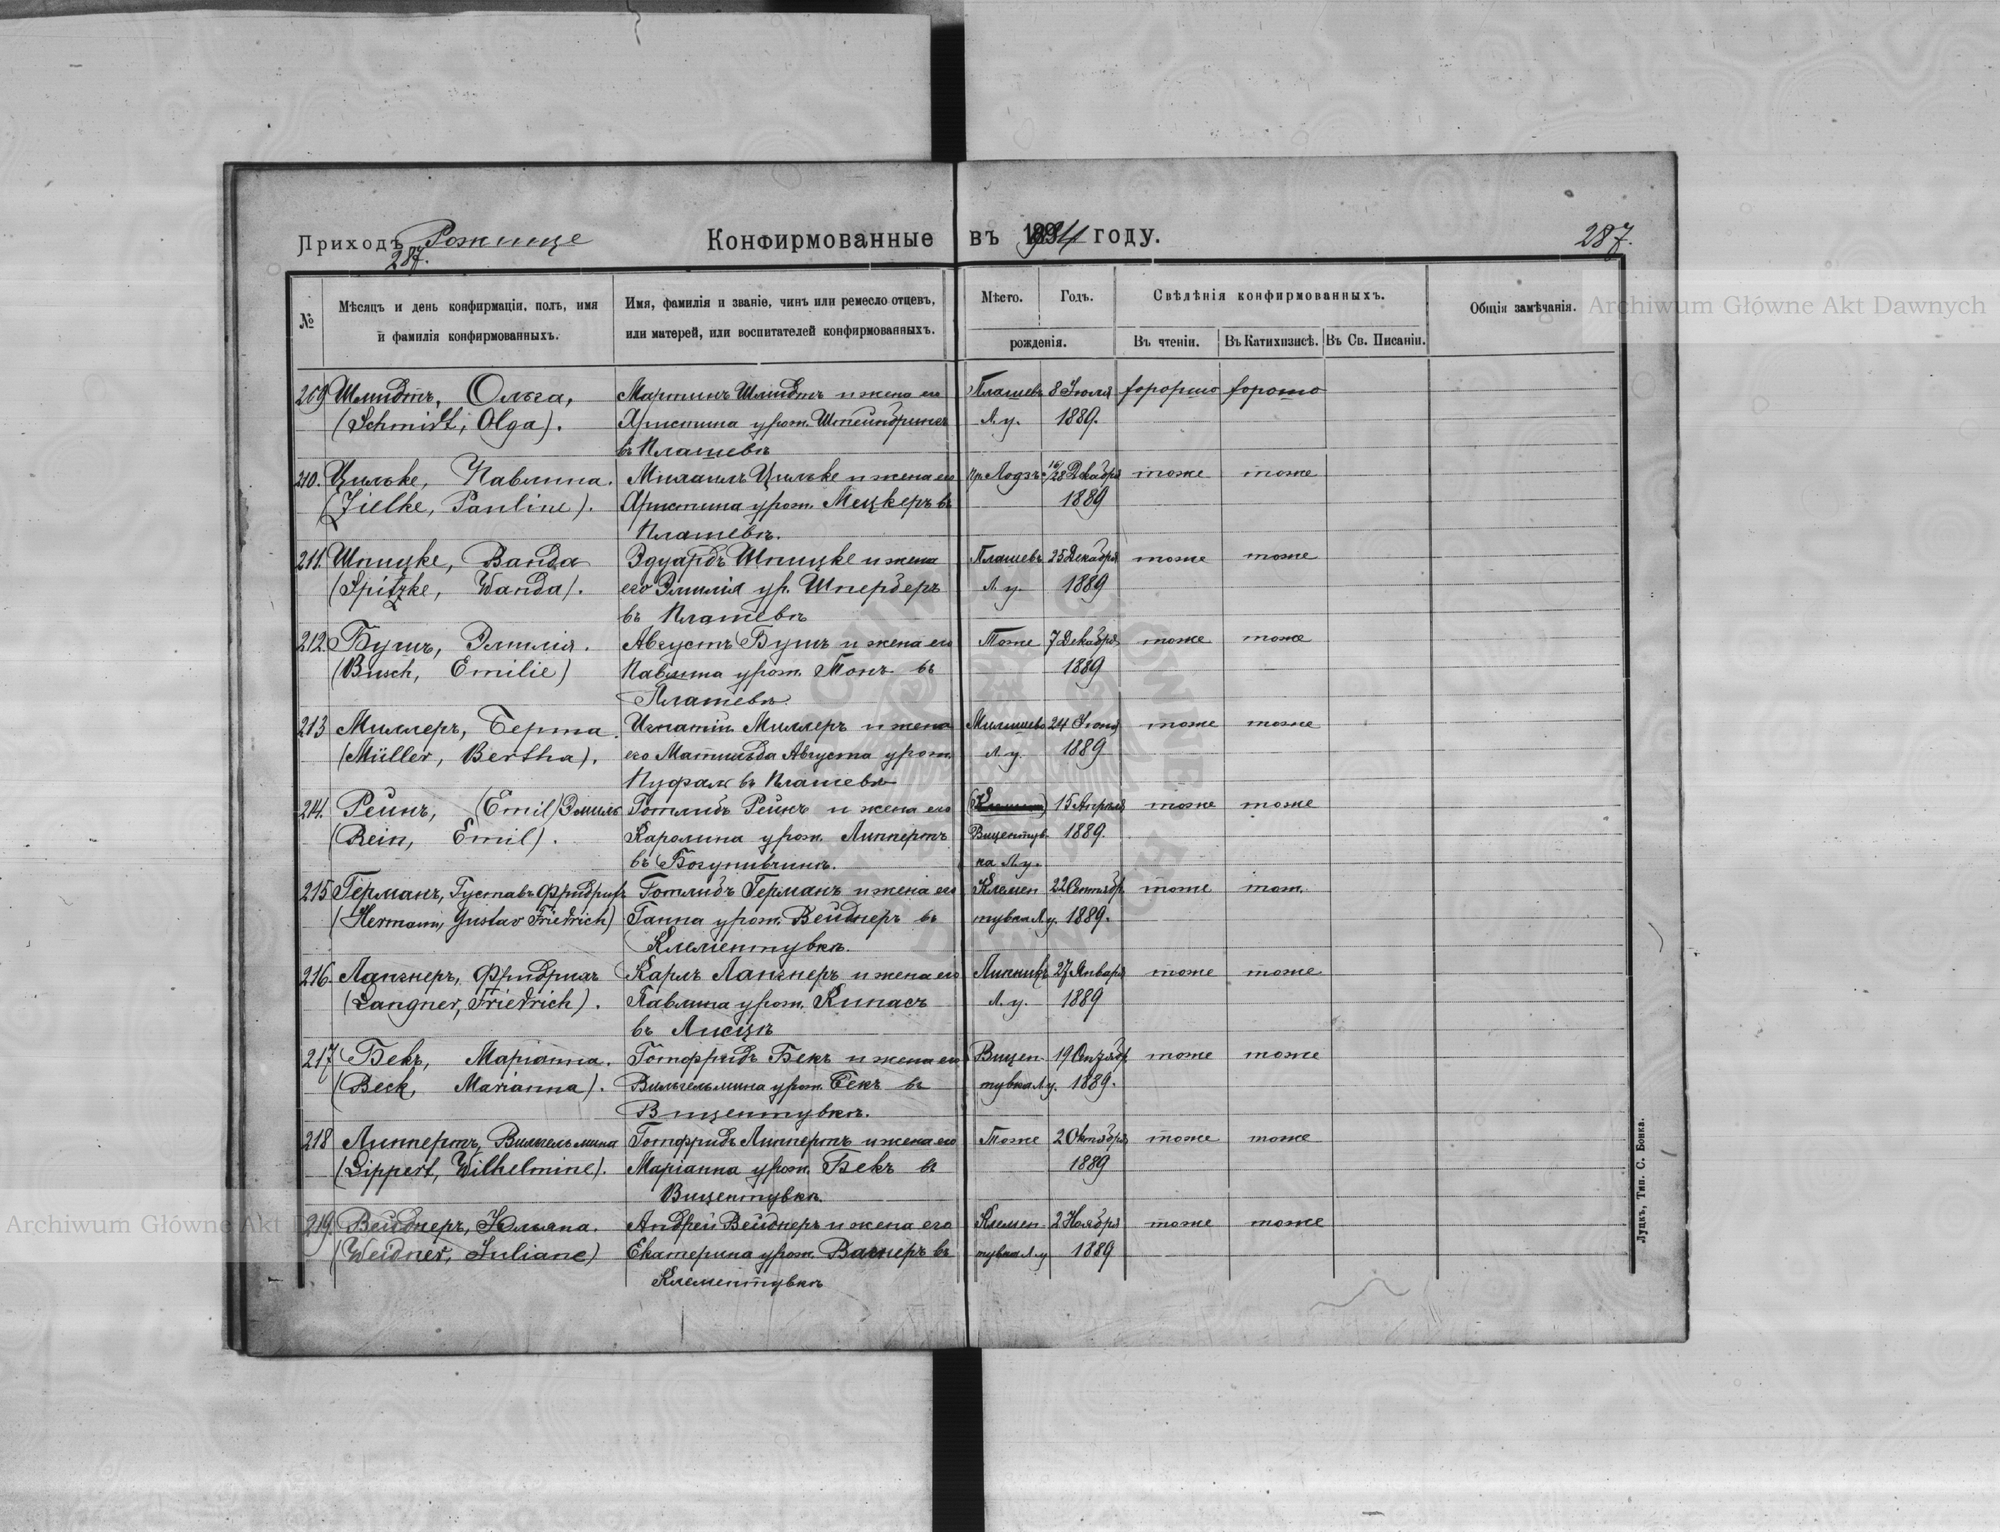 Приходъ Рожище Конфирмованные въ 1904 году. 287.
287.
№ Мѣсяцъ и день конфирмаціи, полъ, имя и фамилія конфирмованныхъ.
Имя, фамилія и званіе, чинъ или ремесло отцевъ, или матерей, или воспитателей конфирмованныхъ.
Мѣсто. Годъ. рожденія.
Свѣдѣнія конфирмованныхъ.
Въ чтеніи. Въ Катихизисѣ. Въ Св. Писаніи.
Общія замѣчанія.
209 Шмидтъ, Ольга, Мартинъ Шмидтъ и жена его Плашевъ 8 Іюля хорошо хорошо
(Schmidt, Olga). Христина урож. Штейнбринкъ Л. у. 1889.
въ Плашевѣ
210. Цильке, Павлина. Михаилъ Цильке и жена его Лодзь 16/28 Декабря тоже тоже
(Zielke, Pauline). Христина урож. Мецкеръ въ 1889
Плашевѣ.
211. Шпицке, Ванда Эдуардъ Шпицке и жена Плашевъ 25 Декабря тоже тоже
(Spitzke, Wanda). его Эмилія ур. Шперберъ Л. у. 1889
въ Плашевѣ
212. Бушъ, Эмилія. Августъ Бушъ и жена его Тоже 7 Декабря тоже тоже
(Busch, Emilie) Павлина урож. Тонъ въ 1889
Плашевѣ.
213 Миллеръ, Берта. Игнатій Миллеръ и жена 24 Іюня тоже тоже
(Müller, Bertha). его Матильда Августа урож. Л. у. 1889
Пуфаль въ Плашевѣ
214. Рейнъ, (Emil) Эмиль Готлибъ Рейнъ и жена его 15 Апрѣля тоже тоже
(Rein, Emil). Каролина урож. Липпертъ Вицентув 1889.
въ ка Л. у.
215 Германъ, Густавъ Фридрихъ Готлибъ Германъ и жена его Клемен 22 Сентябр. тоже тож.
(Hermann, Gustav Friedrich) Ганна урож. Вейднеръ въ тувка Л. у. 1889.
Клементувкѣ.
216. Лангнеръ, Фридрихъ Карлъ Лангнеръ и жена его 27 Января тоже тоже
(Langner, Friedrich). Павлина урож. Кипасъ Л. у. 1889
въ Лисцѣ
217 Бекъ, Маріанна. Готфридъ Бекъ и жена его Вицен 19 тоже тоже
(Beck, Marianna). Вильгельмина урож. Бекъ въ тувка Л. у. 1889.
Вицентувкѣ.
218 Липпертъ, Вильгельмина Готфридъ Липпертъ и жена его Тоже 2 Октября тоже тоже
(Lippert, Wilhelmine). Маріанна урож. Бекъ въ 1889
Вицентувкѣ
219. Вейднеръ, Юльяна. Андрей Вейднеръ и жена его Клемен 2 Ноября тоже тоже
(Weidner, Juliane) Екатерина урож. Вагнеръ въ тувка Л. у 1889
Клементувкѣ
Луцкъ, Тип. С. Бонка.
Archiwum Główne Akt Dawnych
Archiwum Główne Akt D